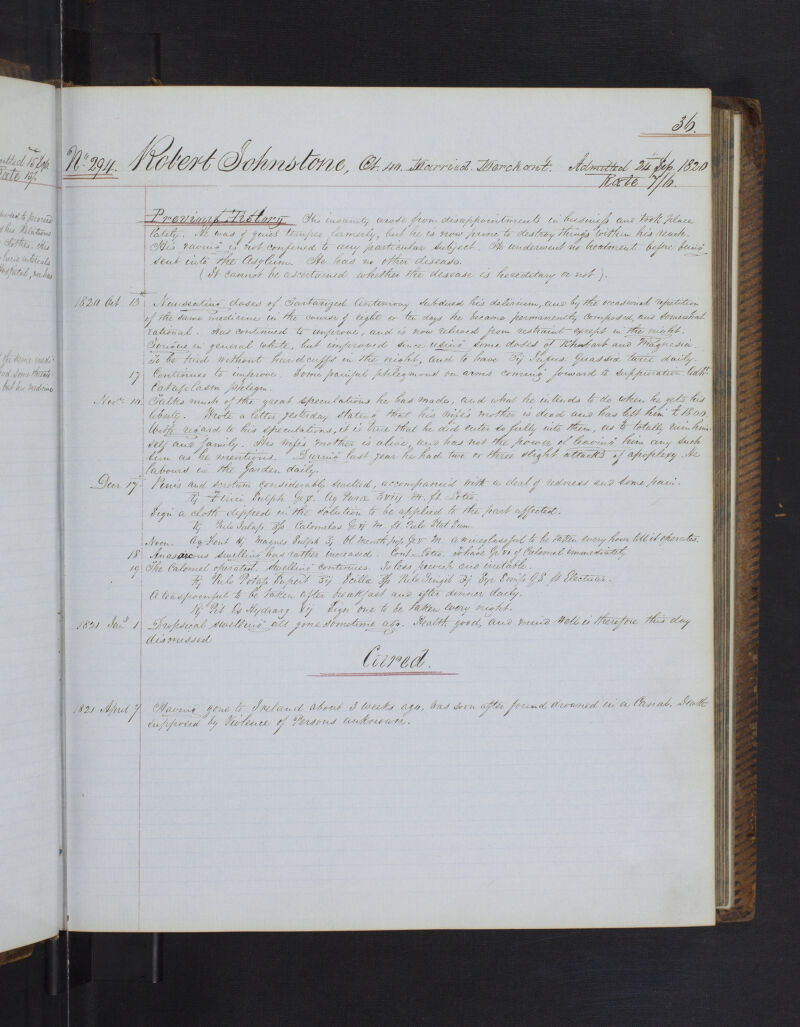 36.
No 294. Robert Johnstone, Æt. 40. Married. Merchant. Admitted 24 Sep. 1820
Rate 7/6.
Previous History His insanity arose from disappointments in business and took place
lately. He was of quiet temper formerly, but he is now prone to destroy things within his reach.
His raving is not confined to any particular subject. He underwent no treatment before being
sent into the Asylum. He has no other disease.
(It cannot be ascertained whether the disease is hereditary or not).
1820 Oct 13 Nauseating doses of Tartarized Antimony subdued his delirium, and by the occasional repetition
of the same medicine in the course of eight or ten days he became permanently composed, and somewhat
rational. Has continued to improve, and is now relieved from restraint except in the night.
Tongue in general white, but improved since using some doses of Rhubarb and Magnesia.
To be tried without handcuffs in the night, and to have Infus Quassia twice daily.
17 Continues to improve. Some painful phlegmons on arms coming forward to suppuration
Cataplasm phlegm.
Novr 10 Talks much of the great speculations he has made, and what he intends to do when he gets his
liberty. Wrote a letter yesterday stating that his wife's mother is dead and has left him £1800.
With regard to his speculations, it is true that he did enter so fully into them, as to totally ruin him-
self and family. His wife's mother is alive, and has not the power of leaving him any such
sum as he mentions. During last year he had two or three slight attacks of apoplexy. He
labours in the Garden daily.
Decr 17 Penis and scrotum considerably swelled, accompanied with a deal of redness and some pain.
℞ Zinci Sulph Gr x. Aq Pura ft. Lotio.
Sign a cloth dipped in the solution to be applied to the part affected.
℞ Pulv Jalap Calomelas Gr ft. Pulv Stat Sum.
Novm. Aq Font Magnes Sulph Ol Menth pip Gr M. a wineglassful to be taken every hour till it operates.
18 Anasarcous swelling has rather increased. Cont. Lotio. to have Gr of Calomel immediately
19 The Calomel operated. Swelling continues. Is less peevish and irritable.
℞ Pulv Potass Supert Scilla Pulv Zingib Syr Simp QS ft Electuar.
A teaspoonful to be taken after breakfast and after dinner daily.
℞ Pil Hydrarg Sign one to be taken every night.
1821 Jany 1 Dropsical swelling all gone sometime ago. Health good, and mind well is therefore this day
dismissed
Cured.
1821 April 7 Having gone to Ireland about 3 weeks ago, was soon after found drowned in a Canal. Death
supposed by Violence of Persons unknown.